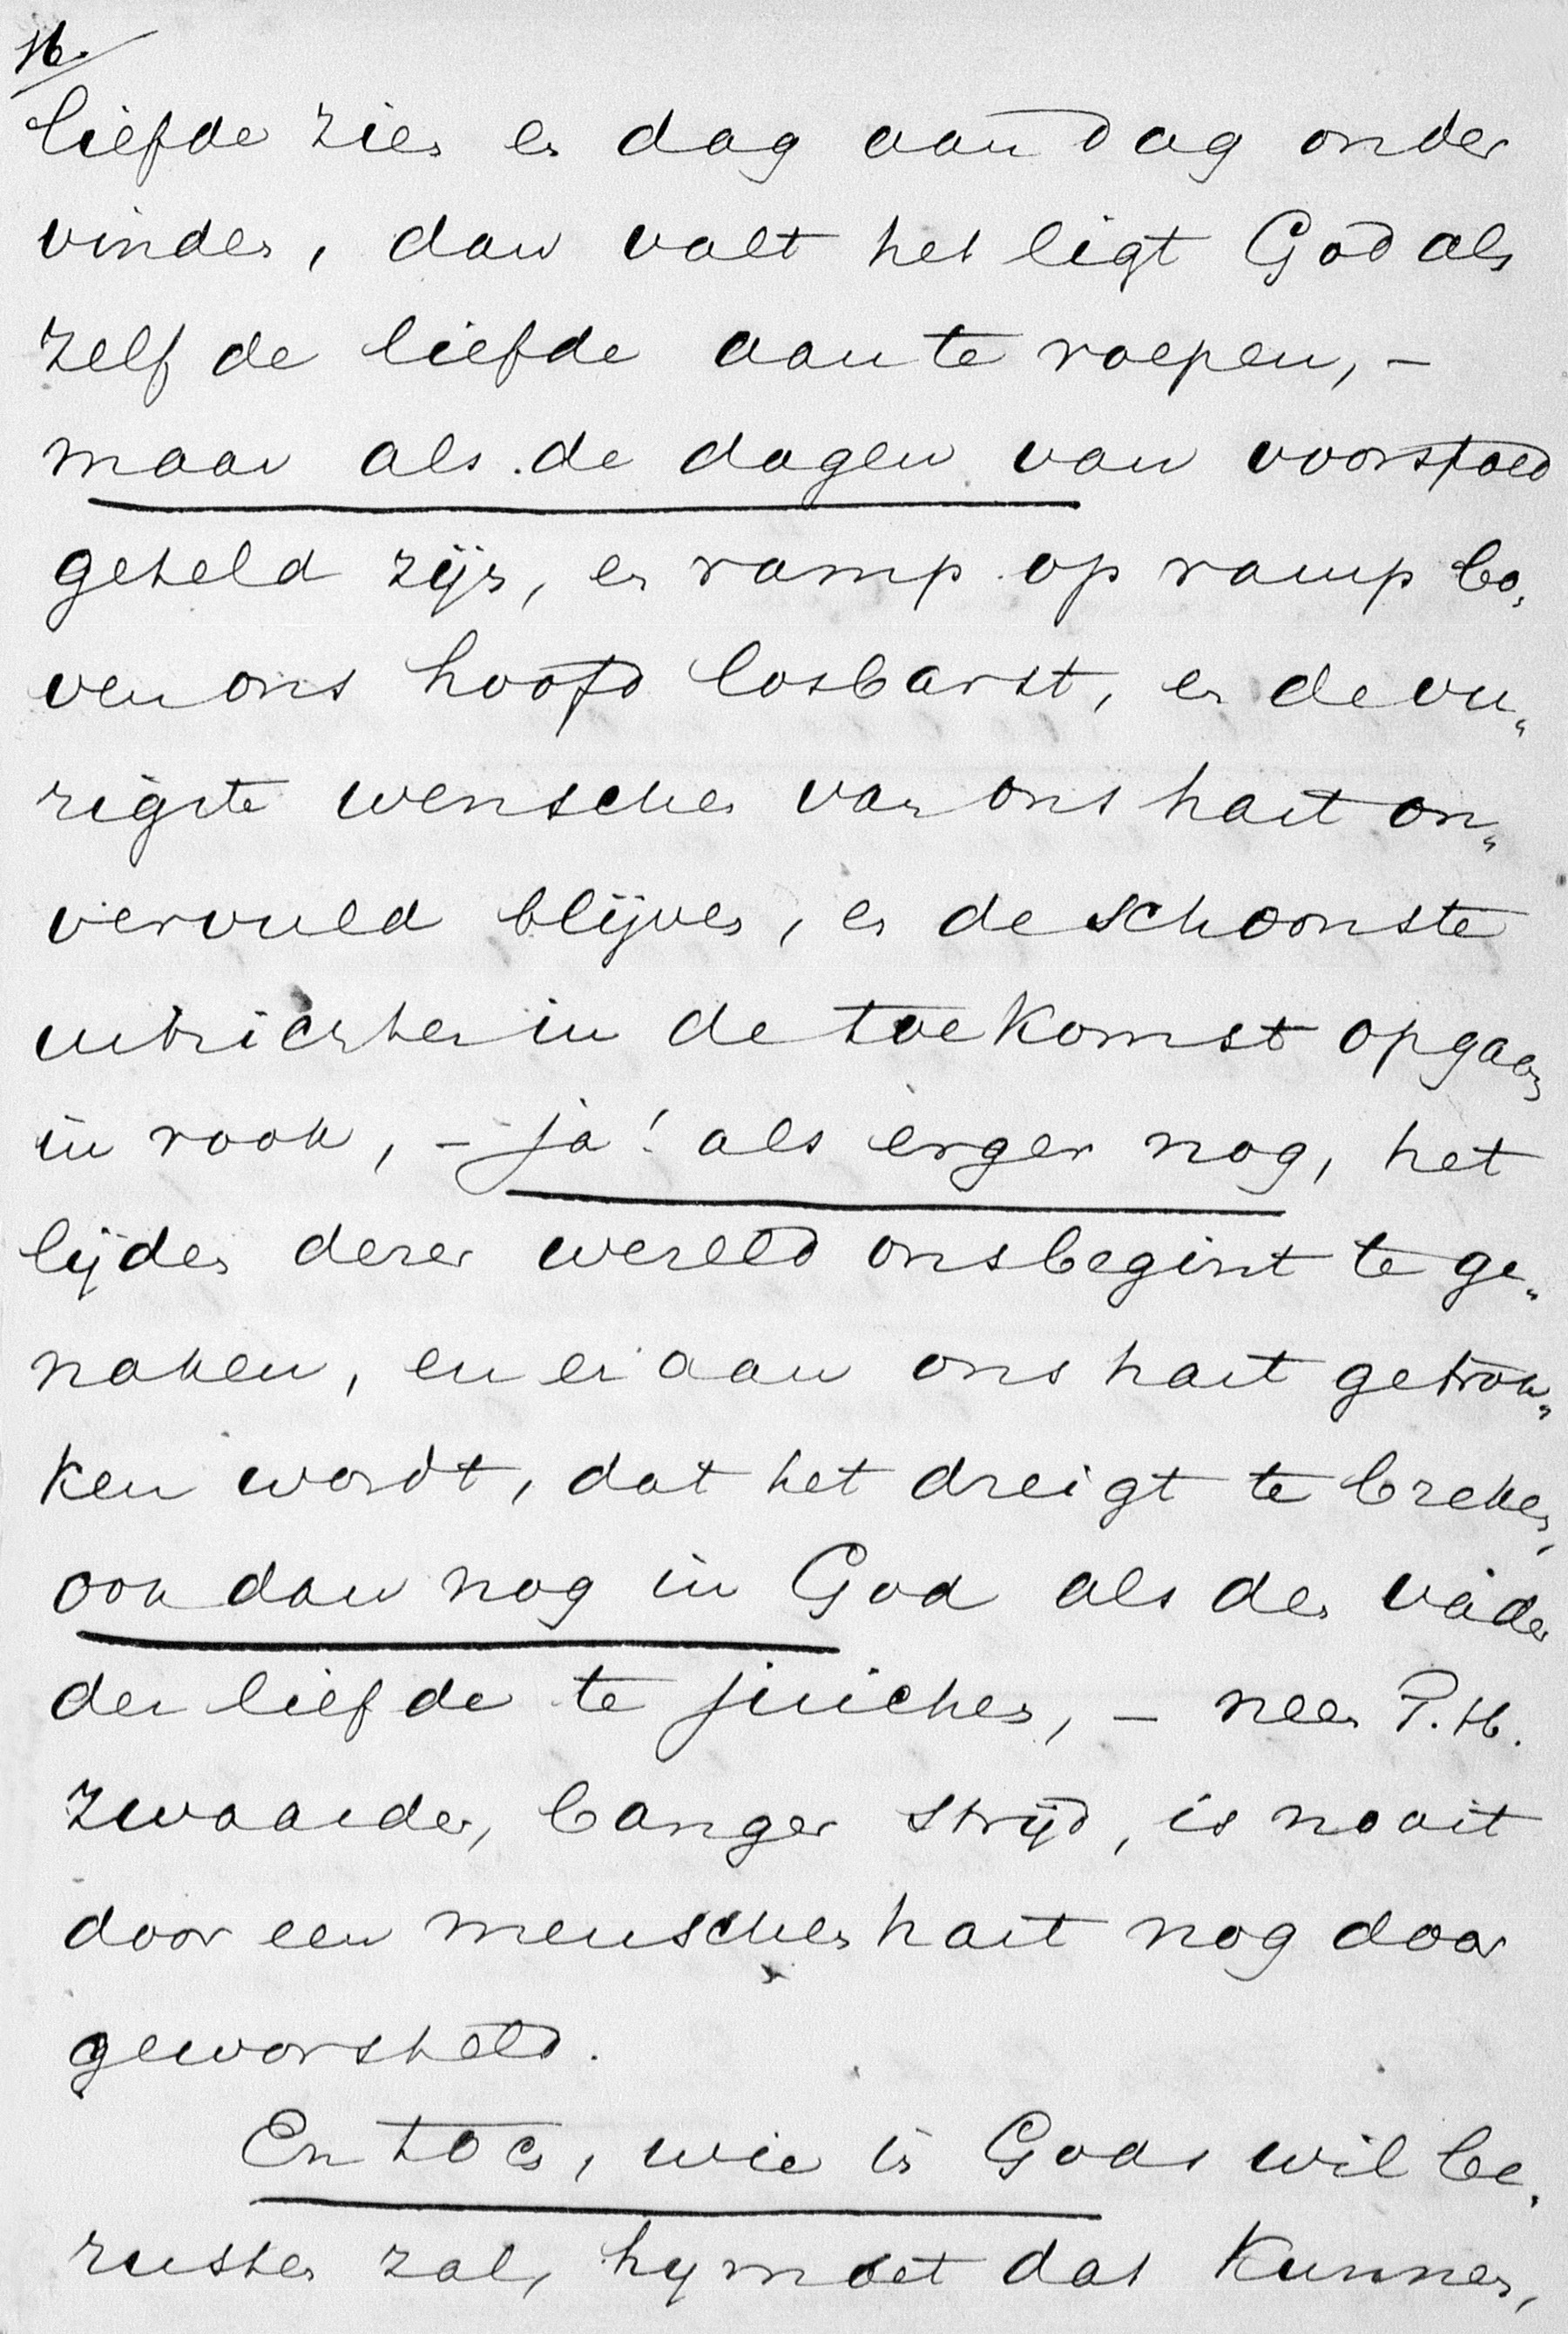 16.
liefde zien en dag aan dag onder
vinden, dan valt het ligt God als
zelf de liefde aan te roepen, –
maar als de dagen van voorspoed
geteld zijn, en ramp op ramp bo„
ven ons hoofd losbarst, en de vu„
rigste wenschen van ons hart on„
vervuld blijven, en de schoonste
uitzichten in de toekomst opgaan
in rook, – ja! als erger nog, het
lijden dezer wereld ons begint te ge„
naken, en er aan ons hart getrok„
ken wordt, dat het dreigt te breken,
ook dan nog in God als den vader
der liefde te juichen, – neen T. H.
zwaarder, banger strijd, is nooit
door een menschenhart nog door
geworsteld.
En toch, wie in Gods wil be„
rusten zal, hij moet dat kunnen,